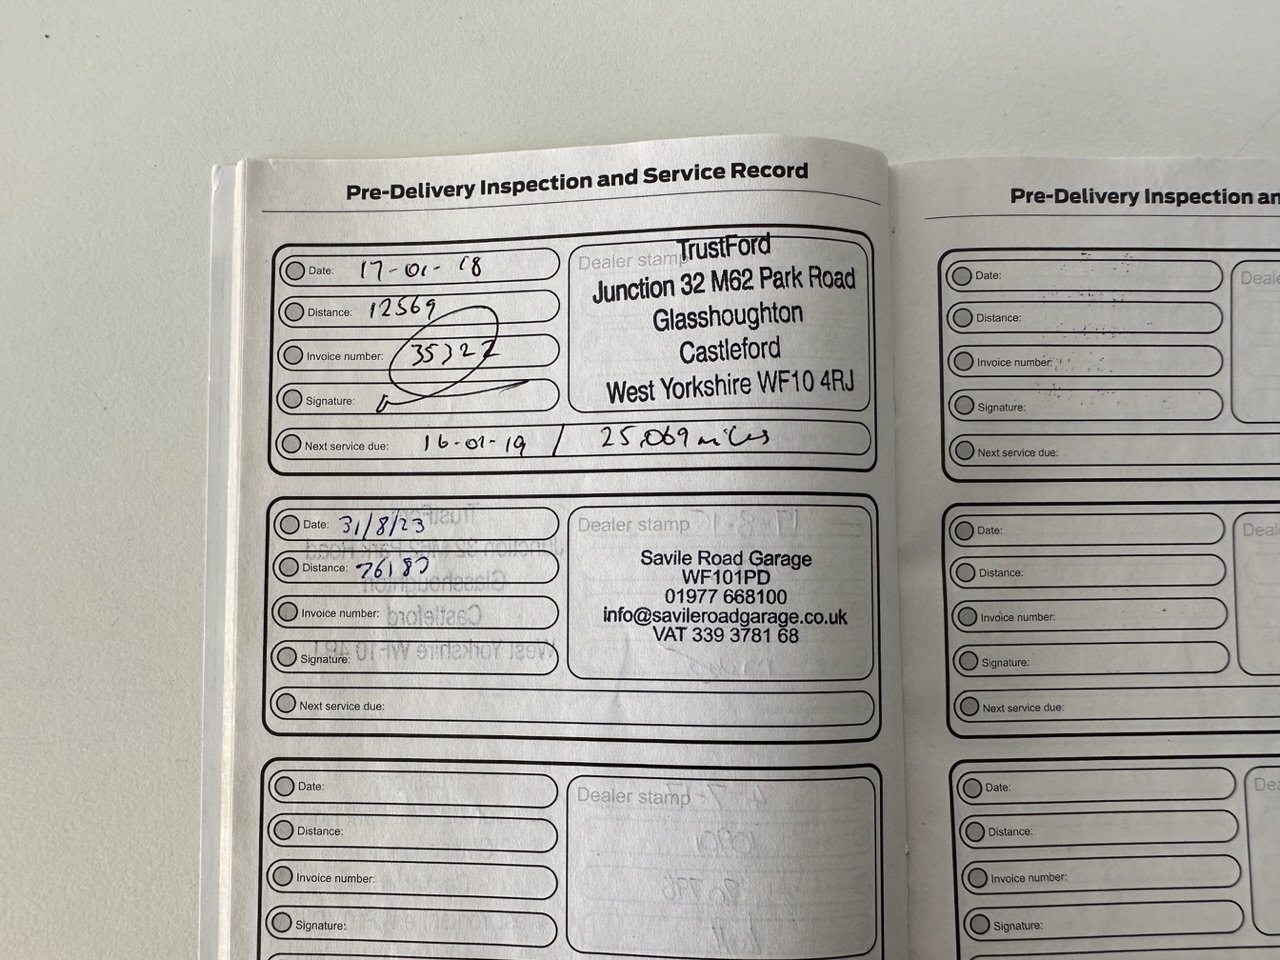 Pre-Delivery Inspection and Service Record
Date: 17-01-18
Distance: 12569
Invoice number: 35322
Signature:
Next service due: 16-01-19 / 25,069 miles
Dealer stamp
TrustFord
Junction 32 M62 Park Road
Glasshoughton
Castleford
West Yorkshire WF10 4RJ
Date: 31/8/23
Distance:
Invoice number:
Signature:
Next service due:
Dealer stamp
Savile Road Garage
WF101PD
01977 668100
info@savileroadgarage.co.uk
VAT 339 3781 68
Date:
Distance:
Invoice number:
Signature:
Dealer stamp
Pre-Delivery Inspection an
Date:
Distance:
Invoice number:
Signature:
Next service due:
Deale
Date:
Distance:
Invoice number:
Signature:
Next service due:
Deal
Date:
Distance:
Invoice number:
Signature:
Dea